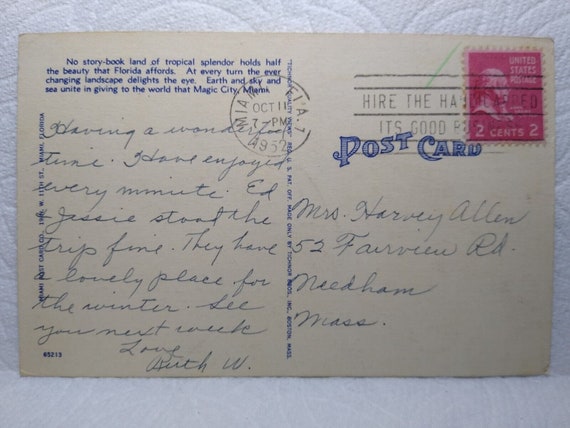 No story-book land of tropical splendor holds half
the beauty that Florida affords. At every turn the ever
changing landscape delights the eye. Earth and sky and
sea unite in giving to the world that Magic City, Miami.
MIAMI FLA. 7
OCT 11
7-PM
1952
HIRE THE HA ED
ITS GOOD B
UNITED
STATES
POSTAGE
2 CENTS 2
POST CARD
Having a wonderful
time. I have enjoyed
every minute. Ed
& Jessie stood the
trip fine. They have
a lovely place for
the winter. See
you next week
Love,
Ruth W.
Mrs. Harvey Allen
52 Fairview Rd.
Needham
Mass.
MIAMI POST CARD CO., W. 11TH ST., MIAMI, FLORIDA
TICHNOR QUALITY VIEWS, REG. U. S. PAT. OFF. MADE ONLY BY TICHNOR BROS., INC., BOSTON, MASS.
65213